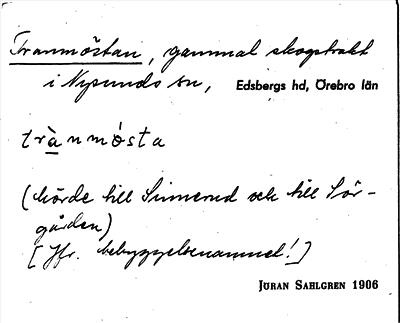 Tranmöstan, gammal skogstrakt
i Nysunds sn, Edsbergs hd, Örebro län
trànmósta
(hörde till Sinnerud och till Sör-
gården)
[Jfr. bebyggelsenamnet!]
JÖRAN SAHLGREN 1906